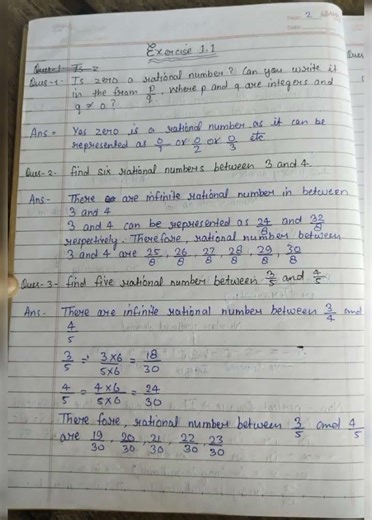 Page 2
Exercise 1.1
Ques-1 Is z
Ques-1- Is zero a rational number? Can you write it
in the from p/q, where p and q are integers and
q ≠ 0?
Ans- Yes zero is a rational number as it can be
represented as 0/1 or 0/2 or 0/3 etc
Ques-2- find six rational numbers between 3 and 4.
Ans- There are infinite rational number in between
3 and 4
3 and 4 can be represented as 24/8 and 32/8
respectively. Therefore, rational number between
3 and 4 are 25/8, 26/8, 27/8, 28/8, 29/8, 30/8
Ques-3- find five rational number between 3/5 and 4/5
Ans- There are infinite rational number between 3/4 and
4/5
3/5 = 3×6/5×6 = 18/30
4/5 = 4×6/5×6 = 24/30
There fore, rational number between 3/5 and 4/5
are 19/30, 20/30, 21/30, 22/30, 23/30
Ques